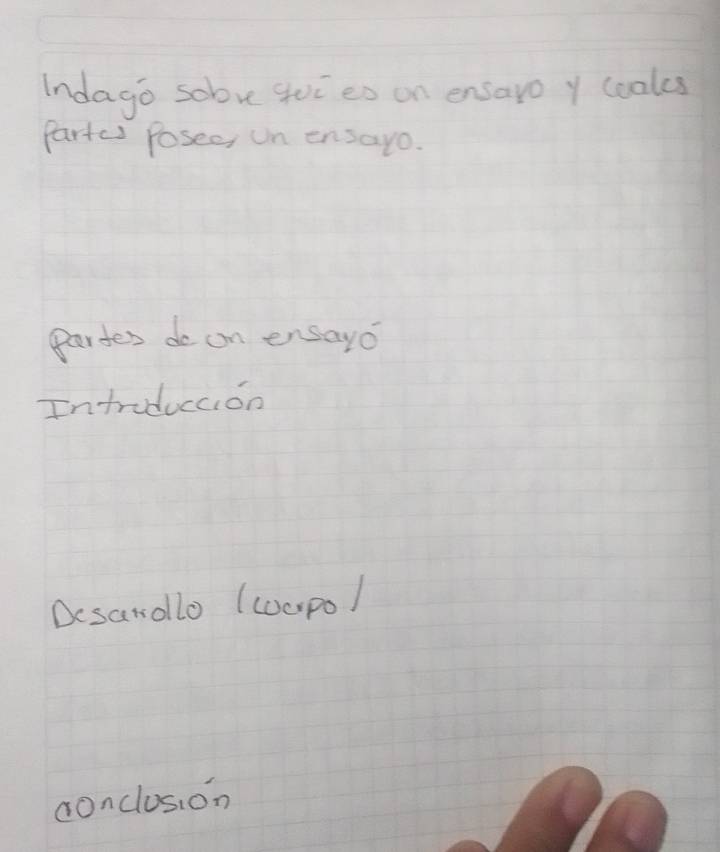 Indagó sobre qué es un ensayo y cuales
partes posee, un ensayo.
partes de un ensayó
Introducción
Desarrollo (cuerpo)
conclusión